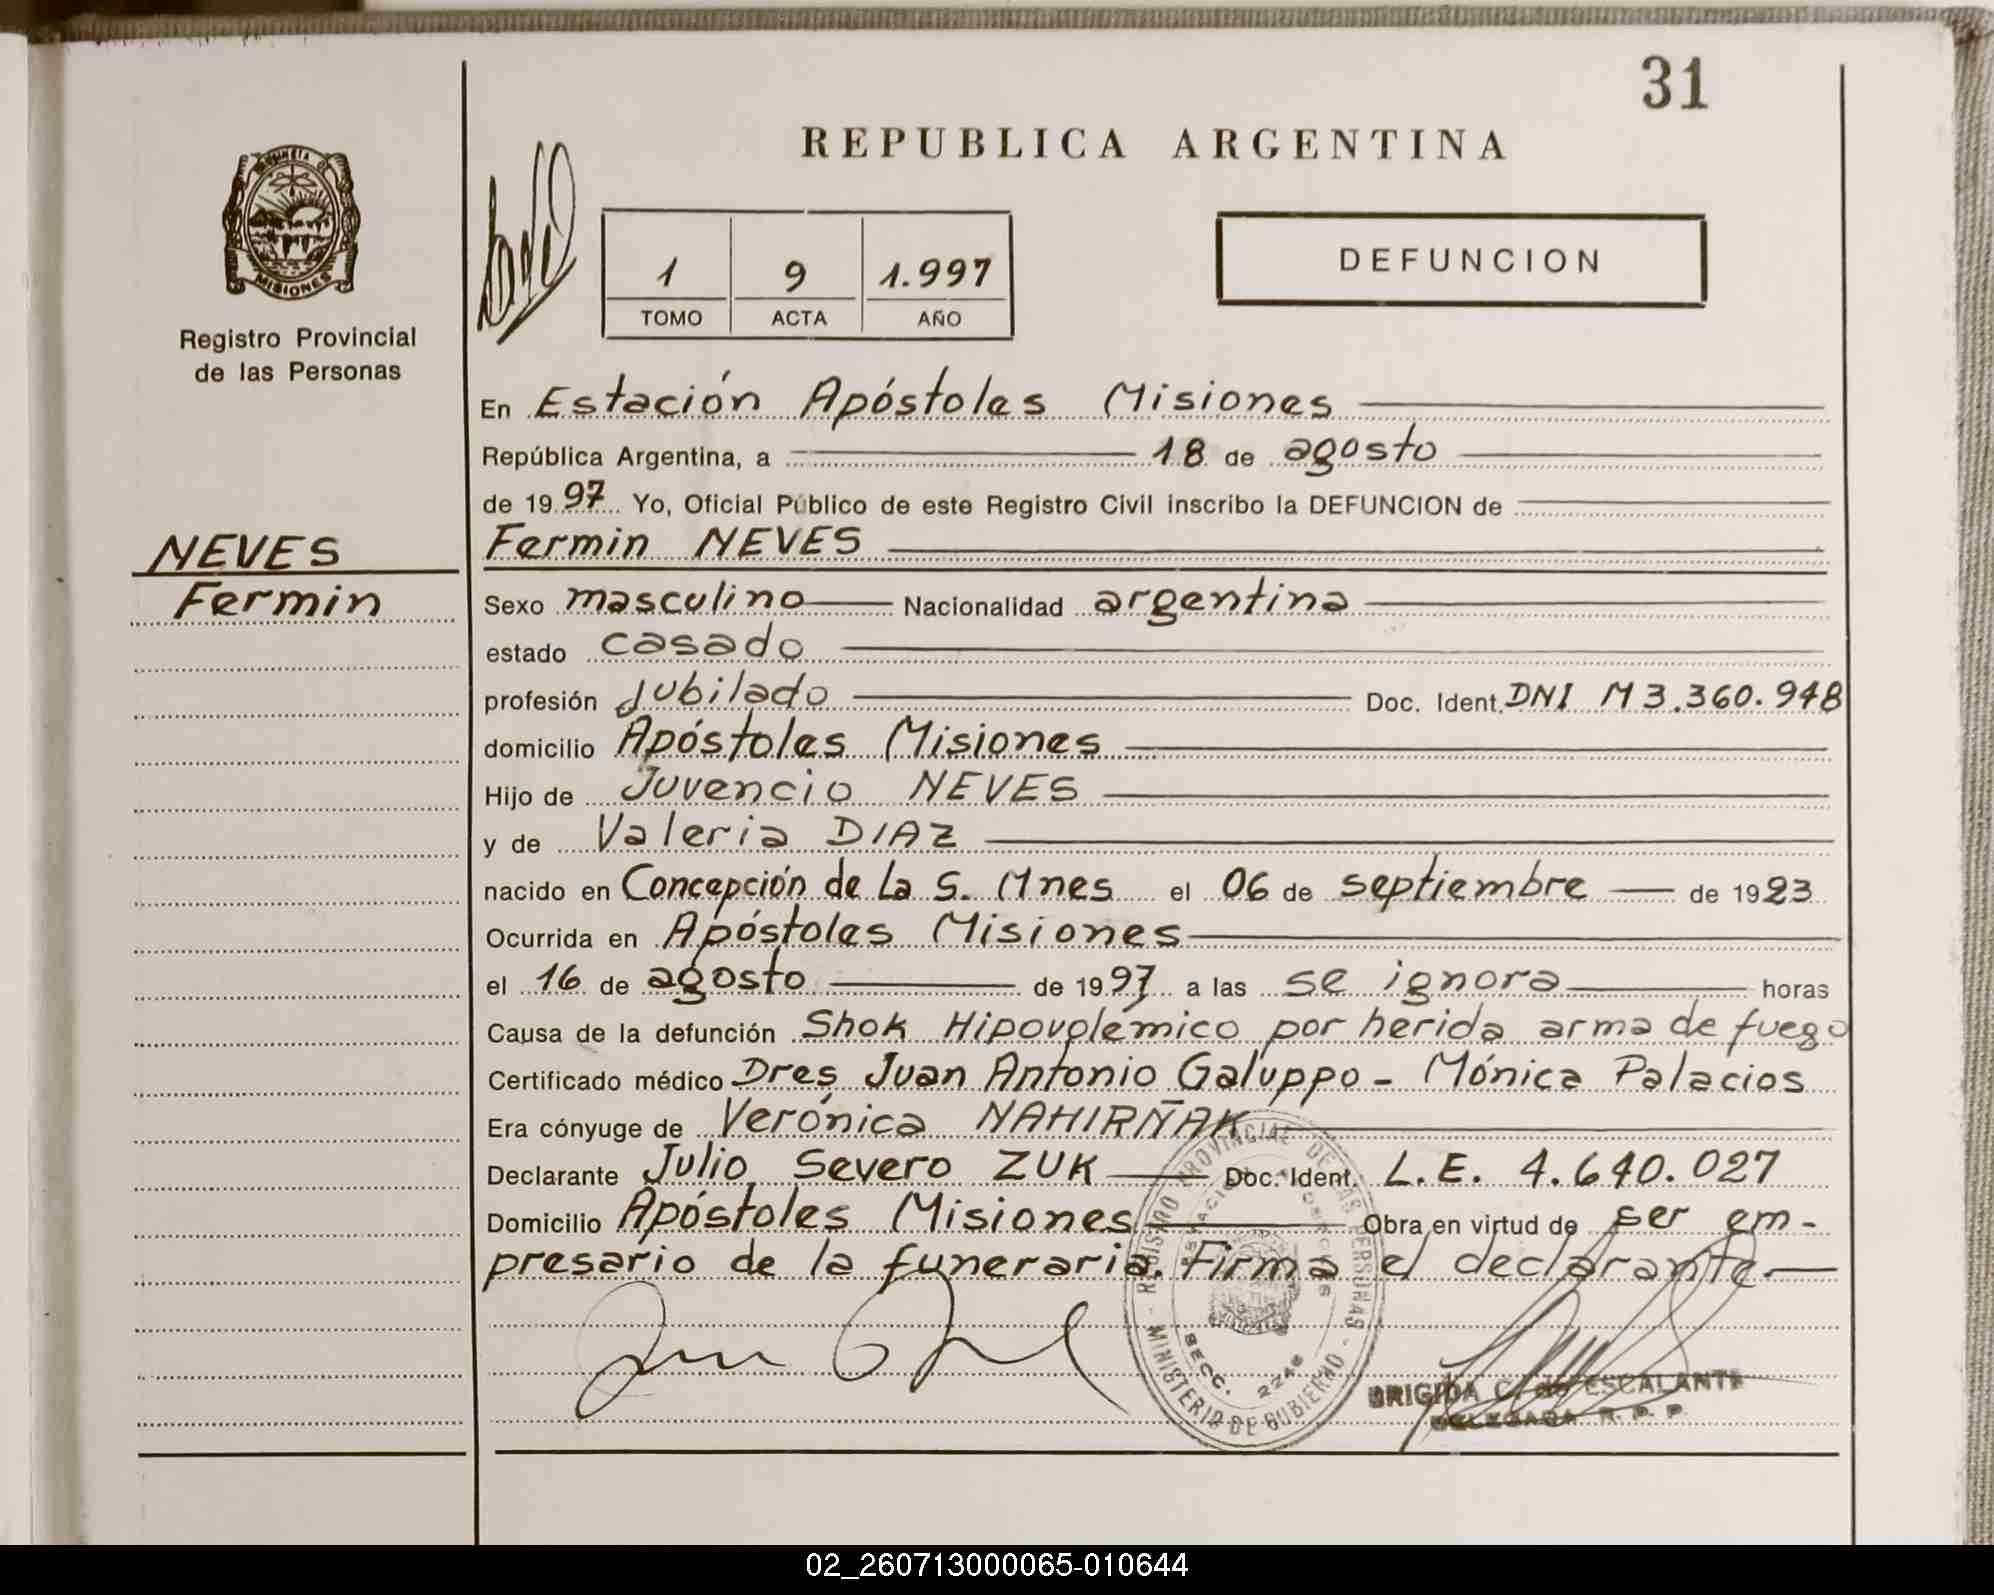 31
REPUBLICA ARGENTINA
PROVINCIA DE
MISIONES
Registro Provincial
de las Personas
1 9 1.997
TOMO ACTA AÑO
DEFUNCION
En Estación Apóstoles Misiones
República Argentina, a 18 de agosto
de 1997 Yo, Oficial Público de este Registro Civil inscribo la DEFUNCION de
NEVES
Fermin
Fermin NEVES
Sexo masculino Nacionalidad argentina
estado casado
profesión Jubilado Doc. Ident. DNI M 3.360.948
domicilio Apóstoles Misiones
Hijo de Juvencio NEVES
y de Valeria DIAZ
nacido en Concepción de La S. Mnes el 06 de septiembre de 1923
Ocurrida en Apóstoles Misiones
el 16 de agosto de 1997 a las se ignora horas
Causa de la defunción Shok Hipovolémico por herida arma de fuego
Certificado médico Dres Juan Antonio Galuppo - Mónica Palacios
Era cónyuge de Verónica NAHIRÑAK
Declarante Julio Severo ZUK Doc. Ident. L.E. 4.640.027
Domicilio Apóstoles Misiones Obra en virtud de ser em-
presario de la funeraria. Firma el declarante
REGISTRO PROVINCIAL DE LAS PERSONAS
- MINISTERIO DE GOBIERNO -
ESTACION APOSTOLES
SECC. 2246
BRIGIDA C. de ESCALANTE
DELEGADA R. P. P.
02_260713000065-010644